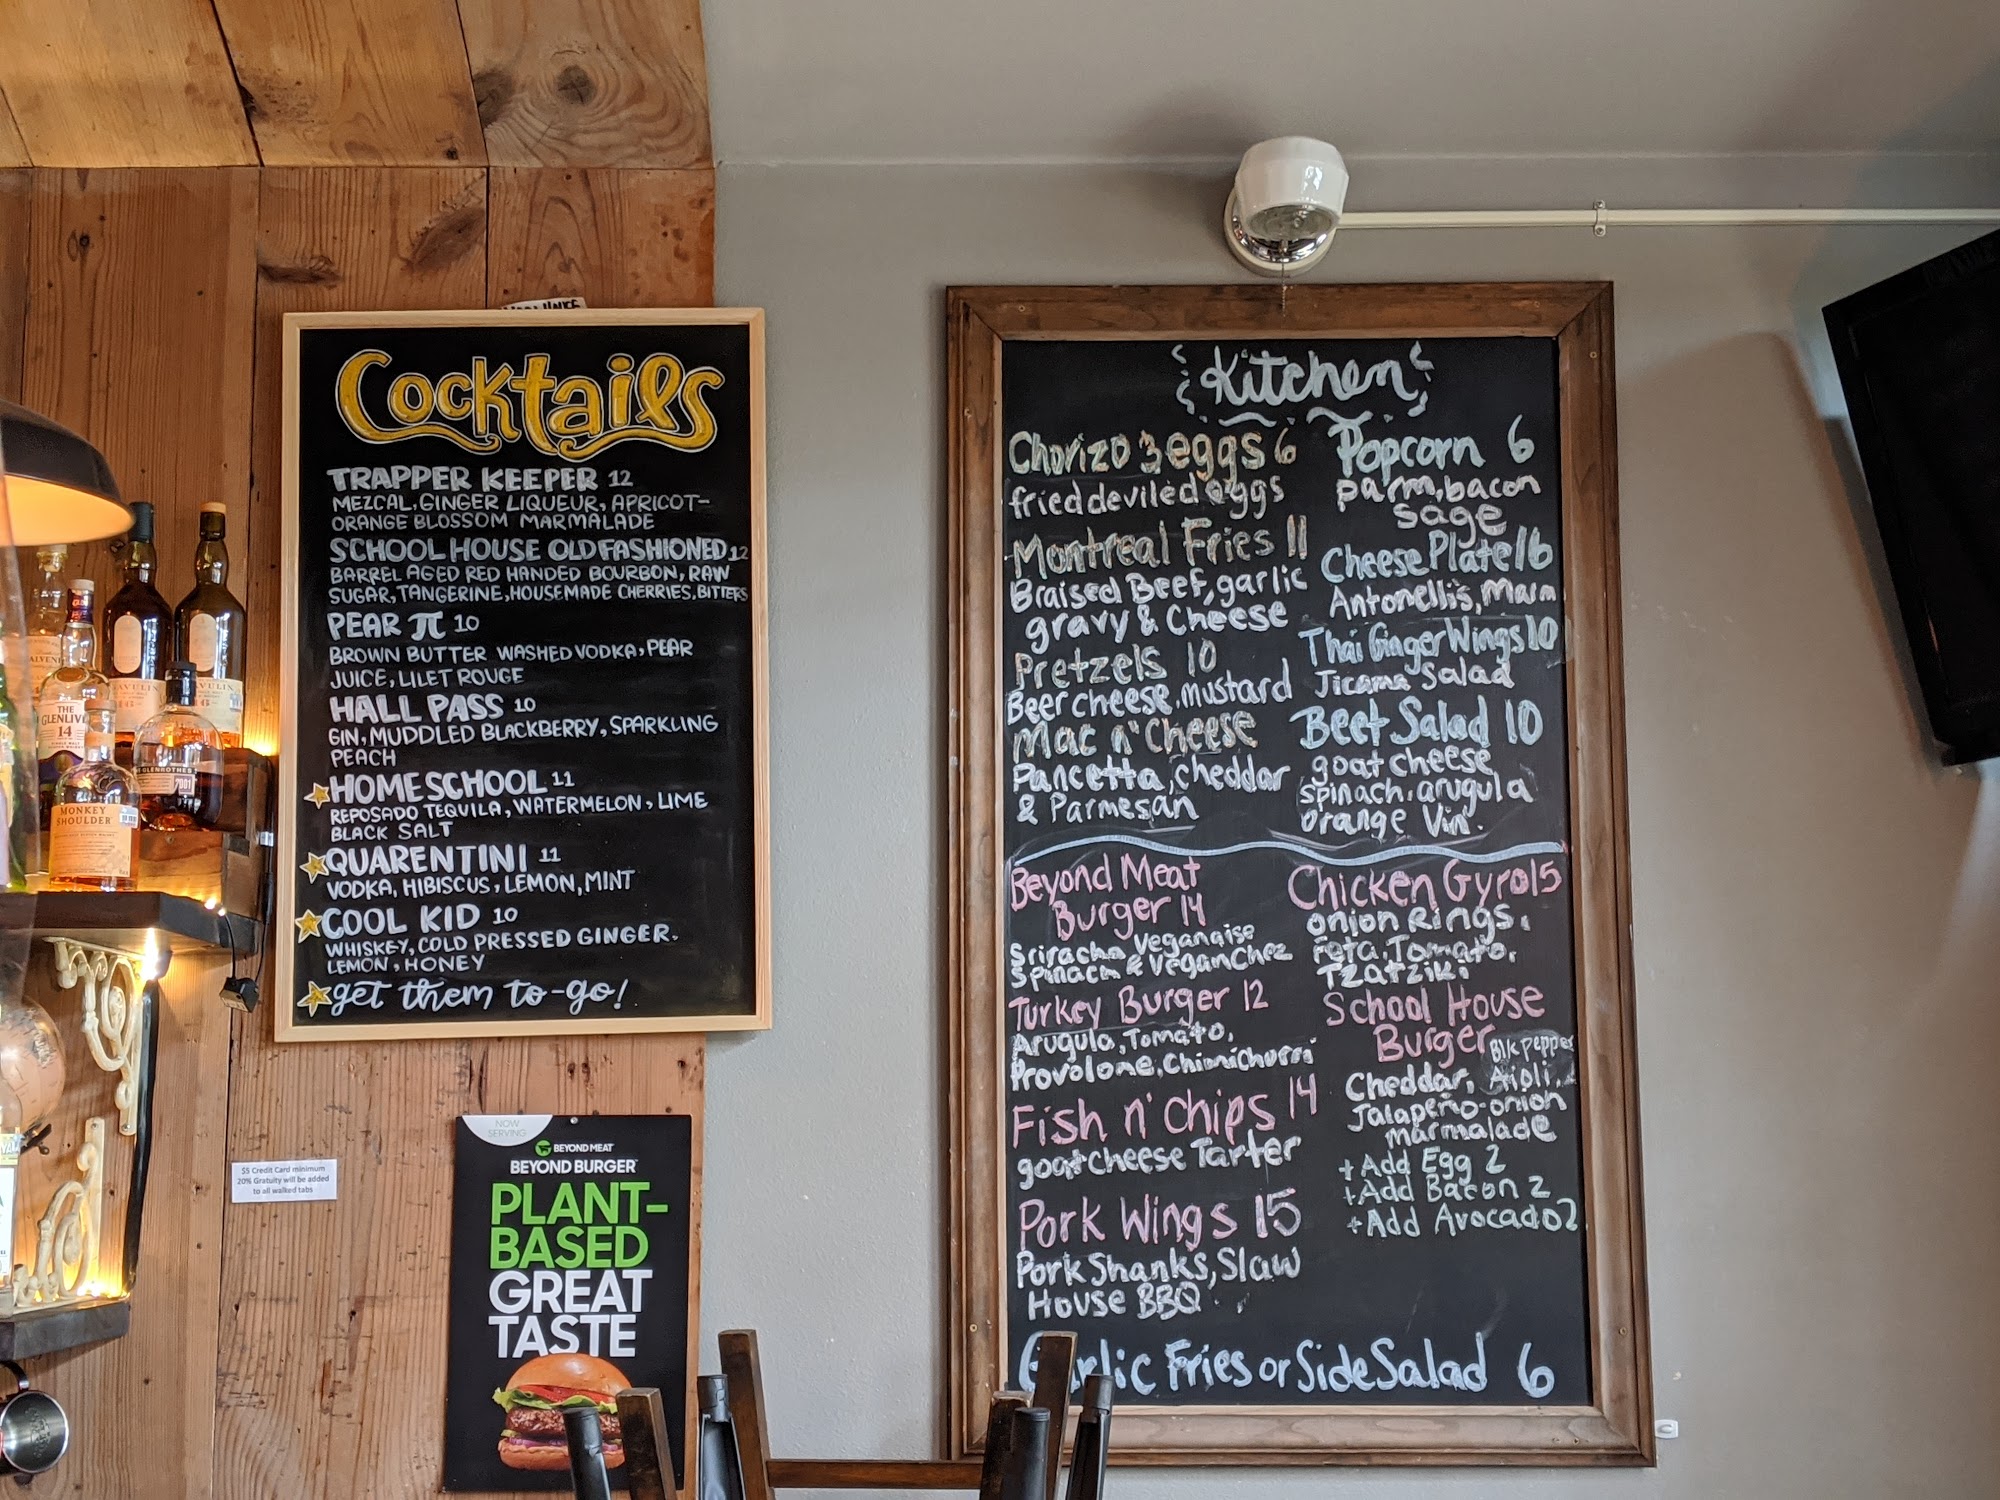 Cocktails
TRAPPER KEEPER 12
MEZCAL, GINGER LIQUEUR, APRICOT-
ORANGE BLOSSOM MARMALADE
SCHOOL HOUSE OLD FASHIONED 12
BARREL AGED RED HANDED BOURBON, RAW
SUGAR, TANGERINE, HOUSEMADE CHERRIES, BITTERS
PEAR π 10
BROWN BUTTER WASHED VODKA, PEAR
JUICE, LILET ROUGE
HALL PASS 10
GIN, MUDDLED BLACKBERRY, SPARKLING
PEACH
HOME SCHOOL 11
REPOSADO TEQUILA, WATERMELON, LIME
BLACK SALT
QUARENTINI 11
VODKA, HIBISCUS, LEMON, MINT
COOL KID 10
WHISKEY, COLD PRESSED GINGER.
LEMON, HONEY
get them to-go!
Kitchen
Chorizo 3 eggs 6
fried deviled eggs
Montreal Fries 11
Braised Beef, garlic
gravy & Cheese
Pretzels 10
Beer cheese, mustard
Mac n' Cheese
Pancetta, cheddar
& Parmesan
Popcorn 6
parm, bacon
sage
Cheese Plate 16
Antonelli's, Marm
Thai Ginger Wings 10
Jicama Salad
Beet Salad 10
goat cheese
spinach, arugula
orange Vin.
Beyond Meat
Burger 14
Sriracha Veganaise
Spinach & Vegan Chez
Turkey Burger 12
Arugula, Tomato,
Provolone, Chimichurri
Fish n' Chips 14
goat cheese Tarter
Pork Wings 15
Pork Shanks, Slaw
House BBQ
Chicken Gyro 15
Onion Rings,
Feta, Tomato,
Tzatziki
School House
Burger
Blk pepper
Cheddar, Aioli,
Jalapeño-onion
marmalade
+ Add Egg 2
+ Add Bacon 2
+ Add Avocado 2
Garlic Fries or Side Salad 6
$5 Credit Card minimum
20% Gratuity will be added
to all walked tabs
NOW
SERVING
BEYOND MEAT
BEYOND BURGER
PLANT-
BASED
GREAT
TASTE
THE
GLENLIV
14
MONKEY
SHOULDER
GLENROTHES
2001